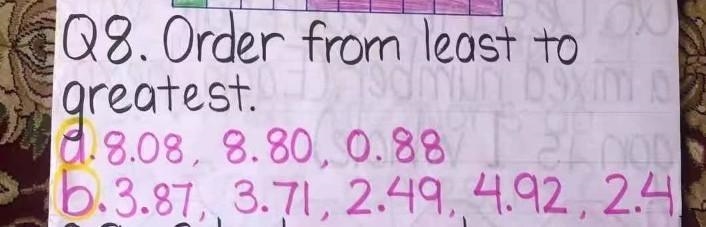 Q8. Order from least to
greatest.
a. 8.08, 8.80, 0.88
b. 3.87, 3.71, 2.49, 4.92, 2.4